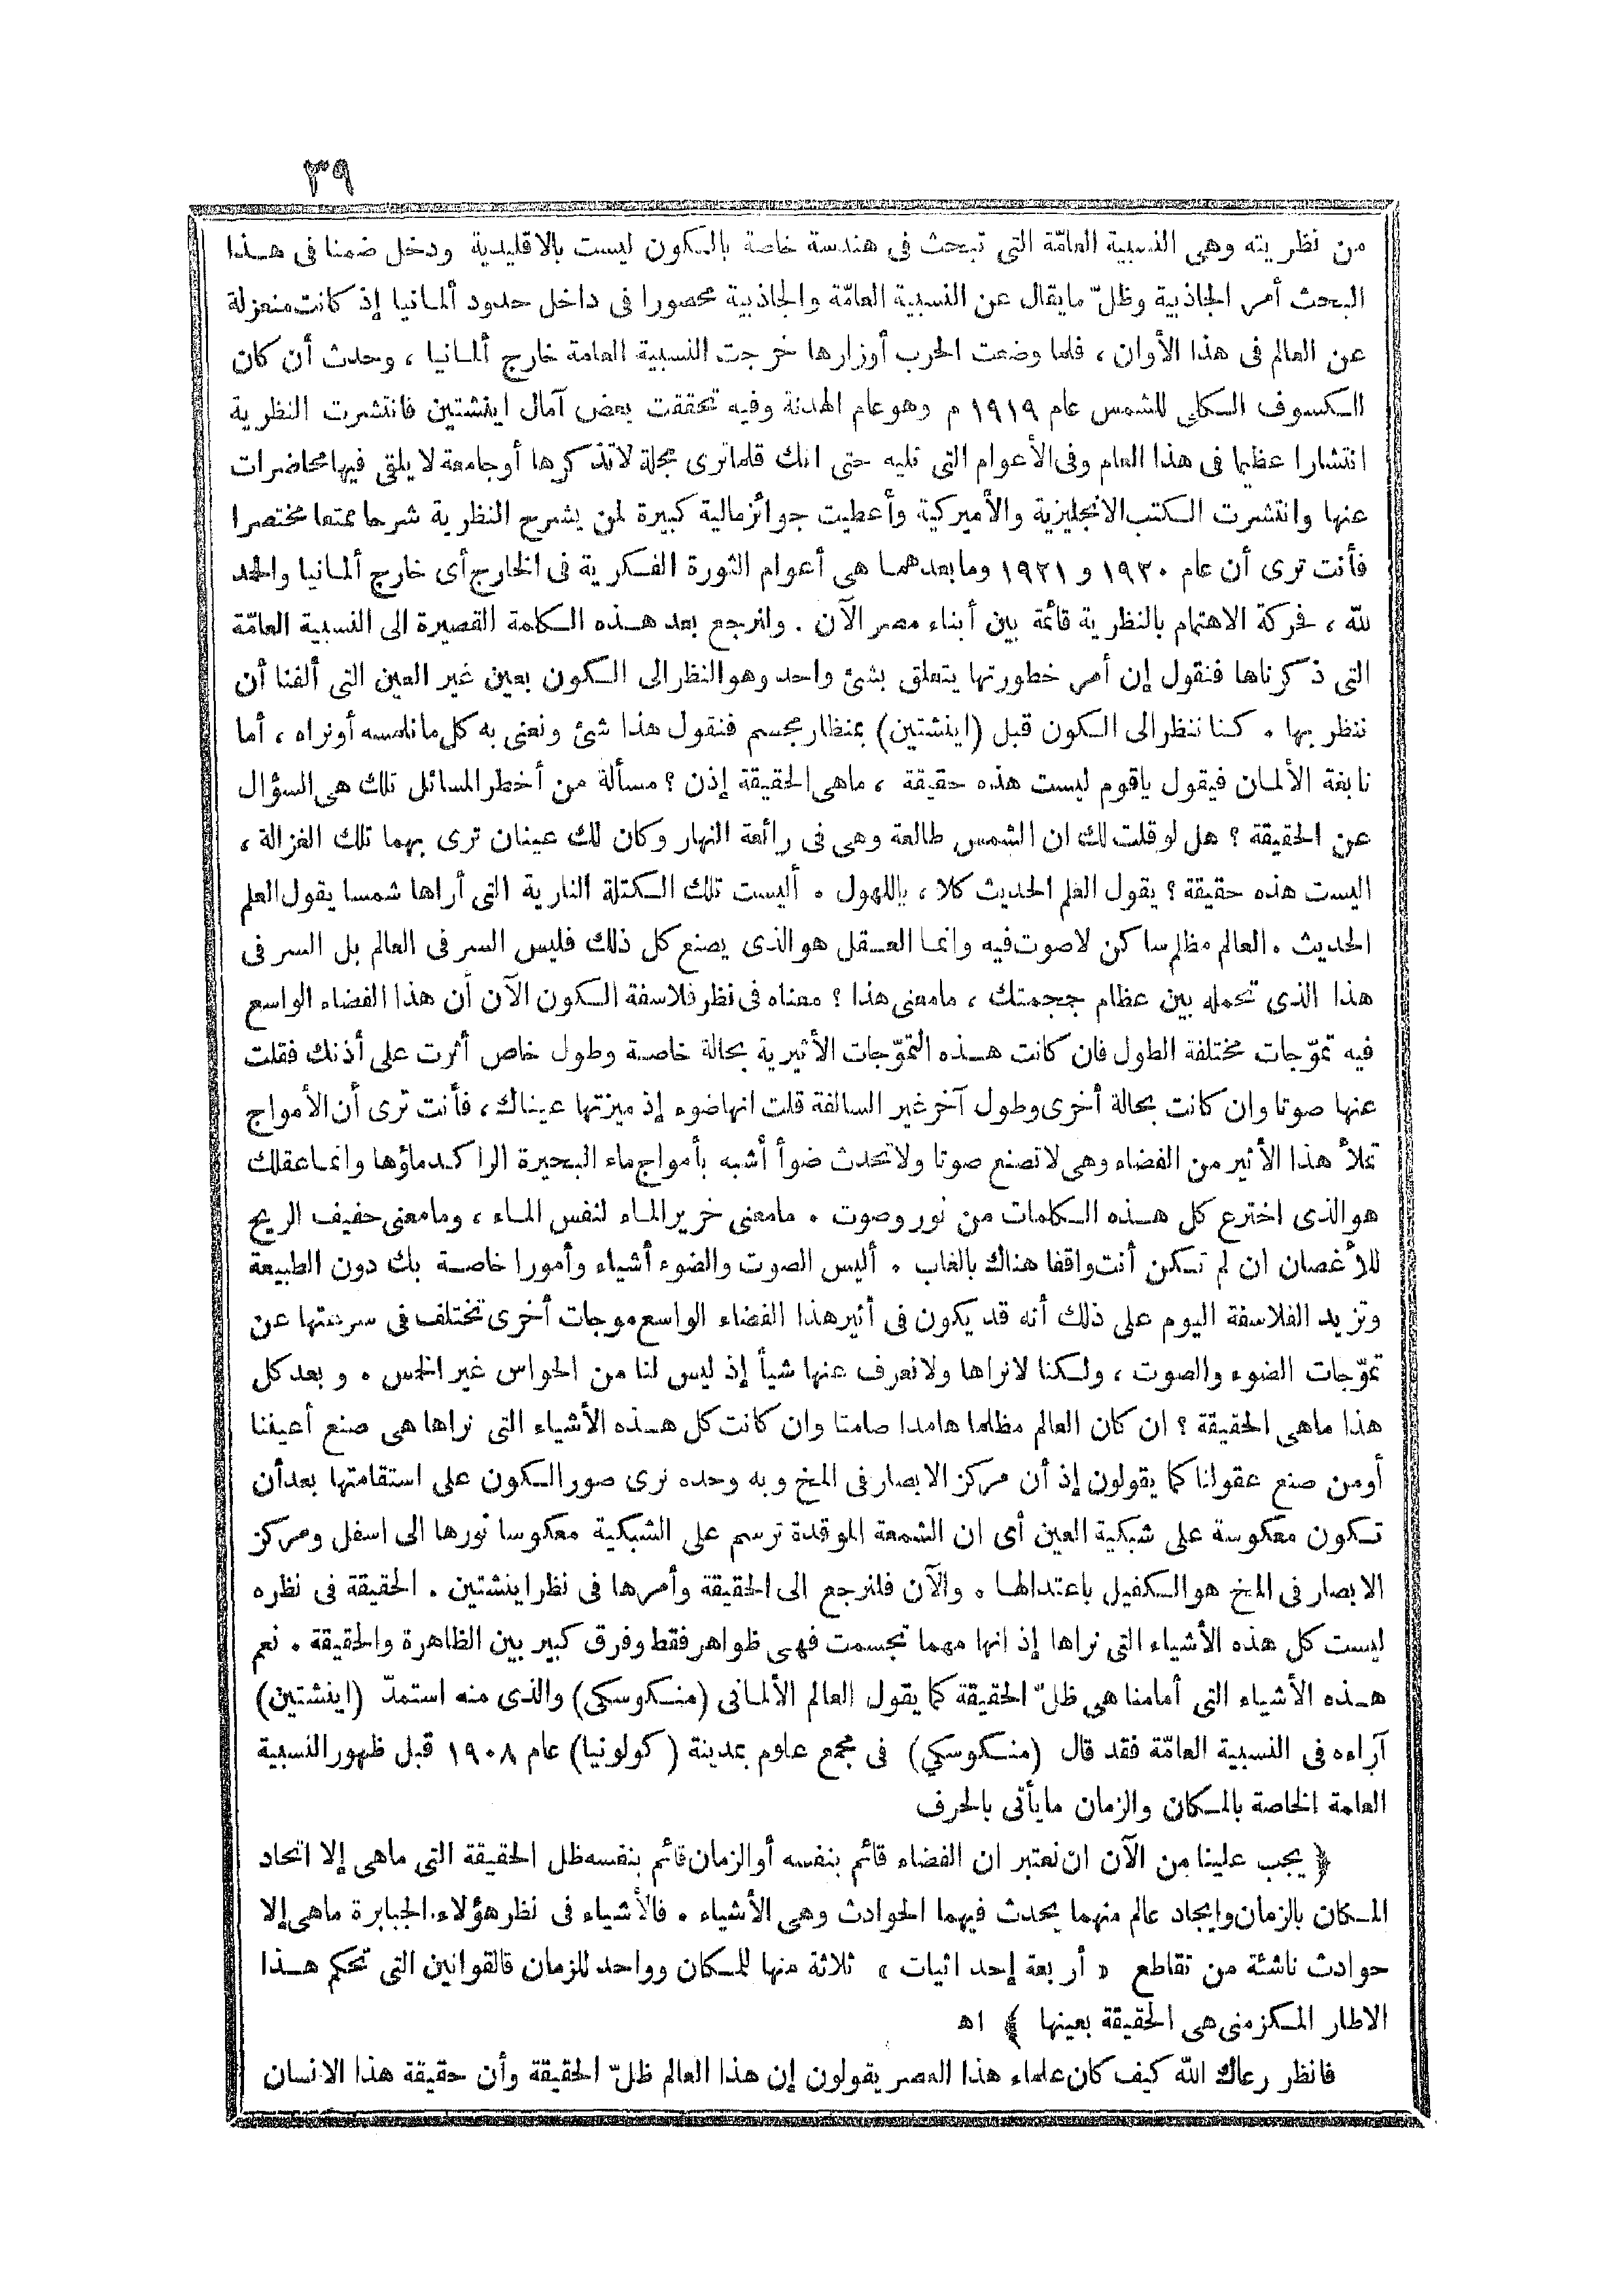 ٣٩
من نظريته وهى النسبية العامّة التى تبحث فى هندسة خاصة بالكون ليست بالاقليدية ودخل ضمنا فى هذا
البحث أمر الجاذبية وظلّ مايقال عن النسبية العامّة والجاذبية محصورا فى داخل حدود ألمانيا إذ كانت منعزلة
عن العالم فى هذا الأوان ، فلما وضعت الحرب أوزارها خرجت النسبية العامة خارج ألمانيا ، وحدث أن كان
الكسوف الكلى للشمس عام ١٩١٩ م وهو عام الهدنة وفيه تحققت بعض آمال اينشتين فانتشرت النظرية
انتشارا عظيما فى هذا العام وفى الأعوام التى تليه حتى انك قلما ترى مجلة لا تذكرها أو جامعة لا يلقى فيها محاضرات
عنها وانتشرت الكتب الانجليزية والأميركية وأعطيت جوائز مالية كبيرة لمن يشرح النظرية شرحا ممتعا مختصرا
فأنت ترى أن عام ١٩٢٠ و ١٩٢١ وما بعدهما هى أعوام الثورة الفكرية فى الخارج أى خارج ألمانيا والحمد
لله ، فحركة الاهتمام بالنظرية قائمة بين أبناء مصر الآن . ولنرجع بعد هذه الكلمة القصيرة الى النسبية العامّة
التى ذكرناها فنقول إن أمر خطورتها يتعلق بشئ واحد وهو النظر الى الكون بعين غير العين التى ألفنا أن
ننظر بها . كنا ننظر الى الكون قبل (اينشتين) بمنظار مجسم فنقول هذا شئ ونعنى به كل ما نلمسه أو نراه ، أما
نابغة الألمان فيقول ياقوم ليست هذه حقيقة ، ماهى الحقيقة إذن ؟ مسألة من أخطر المسائل تلك هى السؤال
عن الحقيقة ؟ هل لو قلت لك ان الشمس طالعة وهى فى رائعة النهار وكان لك عينان ترى بهما تلك الغزالة ،
اليست هذه حقيقة ؟ يقول العلم الحديث كلا ، ياللهول . أليست تلك الكتلة النارية التى أراها شمسا يقول العلم
الحديث . العالم مظلم ساكن لاصوت فيه وانما العقل هو الذى يصنع كل ذلك فليس السر فى العالم بل السر فى
هذا الذى تحمله بين عظام جمجمتك ، مامعنى هذا ؟ معناه فى نظر فلاسفة الكون الآن أن هذا الفضاء الواسع
فيه تموّجات مختلفة الطول فان كانت هذه التموّجات الأثيرية بحالة خاصة وطول خاص أثرت على أذنك فقلت
عنها صوتا وان كانت بحالة أخرى وطول آخر غير السالفة قلت انها ضوء إذ ميزتها عيناك ، فأنت ترى أن الأمواج
تملأ هذا الأثير من الفضاء وهى لا تصنع صوتا ولا تحدث ضوأ أشبه بأمواج ماء البحيرة الراكد ماؤها وانما عقلك
هو الذى اخترع كل هذه الكلمات من نور وصوت . مامعنى خرير الماء لنفس الماء ، وما معنى حفيف الريح
للأغصان ان لم تكن أنت واقفا هناك بالغاب . أليس الصوت والضوء أشياء وأمورا خاصة بك دون الطبيعة
وتزيد الفلاسفة اليوم على ذلك أنه قد يكون فى أثير هذا الفضاء الواسع موجات أخرى تختلف فى سرعتها عن
تموّجات الضوء والصوت ، ولكنا لا نراها ولا نعرف عنها شيأ إذ ليس لنا من الحواس غير الخمس . وبعد كل
هذا ماهى الحقيقة ؟ ان كان العالم مظلما هامدا صامتا وان كانت كل هذه الأشياء التى نراها هى صنع أعيننا
أو من صنع عقولنا كما يقولون إذ أن مركز الابصار فى المخ وبه وحده نرى صور الكون على استقامتها بعد أن
تكون معكوسة على شبكية العين أى ان الشمعة الموقدة ترسم على الشبكية معكوسا نورها الى اسفل ومركز
الابصار فى المخ هو الكفيل باعتدالها . والآن فلنرجع الى الحقيقة وأمرها فى نظر اينشتين . الحقيقة فى نظره
ليست كل هذه الأشياء التى نراها إذ انها مهما تجسمت فهى ظواهر فقط وفرق كبير بين الظاهرة والحقيقة . نعم
هذه الأشياء التى أمامنا هى ظلّ الحقيقة كما يقول العالم الألمانى (منكوسكى) والذى منه استمدّ (اينشتين)
آراءه فى النسبية العامّة فقد قال (منكوسكي) فى مجمع علوم بمدينة (كولونيا) عام ١٩٠٨ قبل ظهور النسبية
العامة الخاصة بالمكان والزمان ما يأتى بالحرف
﴿ يجب علينا من الآن ان نعتبر ان الفضاء قائم بنفسه أو الزمان قائم بنفسه ظل الحقيقة التى ماهى إلا اتحاد
المكان بالزمان وايجاد عالم منهما يحدث فيهما الحوادث وهى الأشياء . فالأشياء فى نظر هؤلاء الجبابرة ماهى إلا
حوادث ناشئة من تقاطع « أربعة إحداثيات » ثلاثة منها للمكان وواحد للزمان فالقوانين التى تحكم هذا
الاطار المكزمنى هى الحقيقة بعينها ﴾ اه
فانظر رعاك الله كيف كان علماء هذا العصر يقولون إن هذا العالم ظلّ الحقيقة وأن حقيقة هذا الانسان